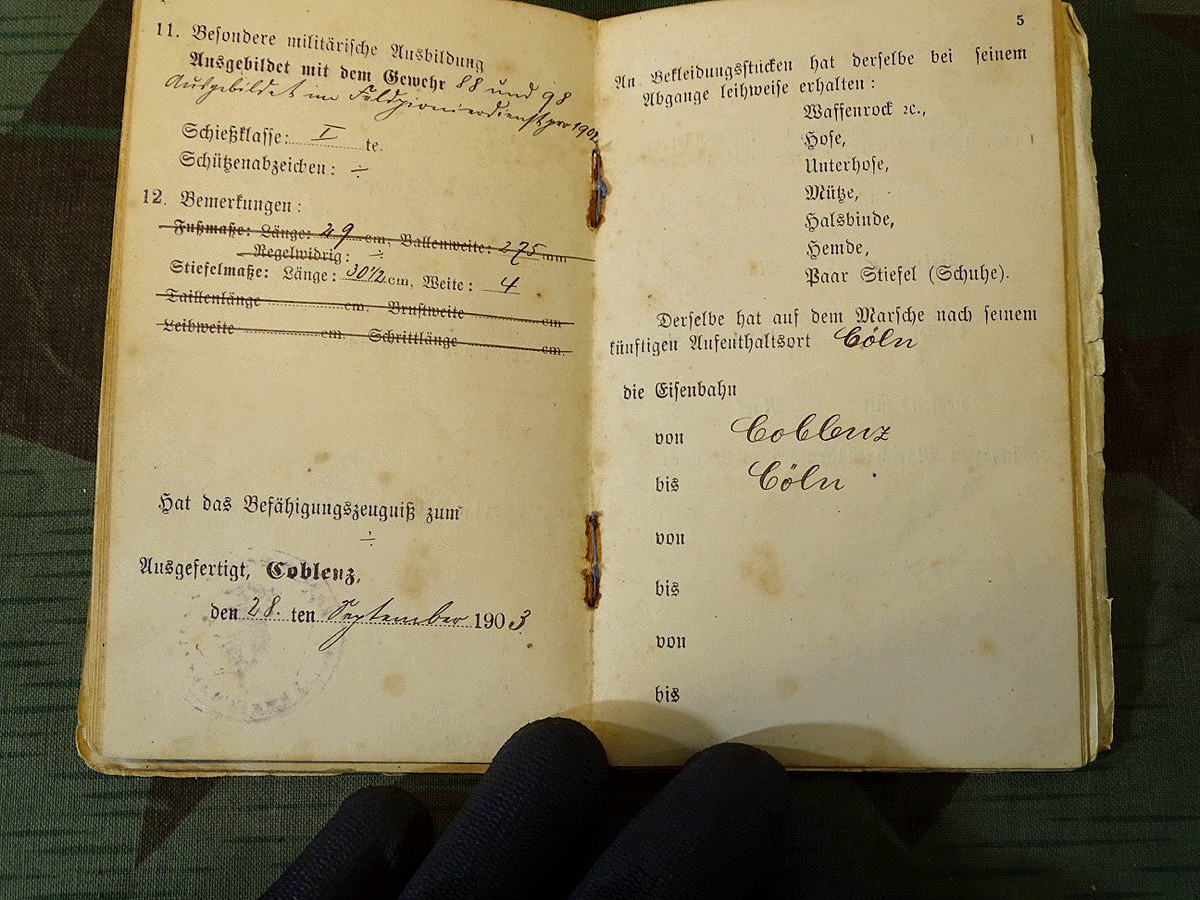 11. Besondere militärische Ausbildung
Ausgebildet mit dem Gewehr 88 und 98
Ausgebildet im Feldpionierdienst pro 1902
Schießklasse: I te.
Schützenabzeichen: ÷
12. Bemerkungen:
Fußmaße: Länge: 29 cm, Ballenweite: 275 mm
Regelwidrig: ÷
Stiefelmaße: Länge: 30½ cm, Weite: 4
Taillenlänge cm. Brustweite cm
Leibweite cm. Schrittlänge cm.
Hat das Befähigungszeugniß zum
÷
Ausgefertigt, Coblenz,
den 28. ten September 1903
5
An Bekleidungsstücken hat derselbe bei seinem
Abgange leihweise erhalten:
Waffenrock ꝛc.,
Hose,
Unterhose,
Mütze,
Halsbinde,
Hemde,
Paar Stiefel (Schuhe).
Derselbe hat auf dem Marsche nach seinem
künftigen Aufenthaltsort Cöln
die Eisenbahn
von Coblenz
bis Cöln
von
bis
von
bis